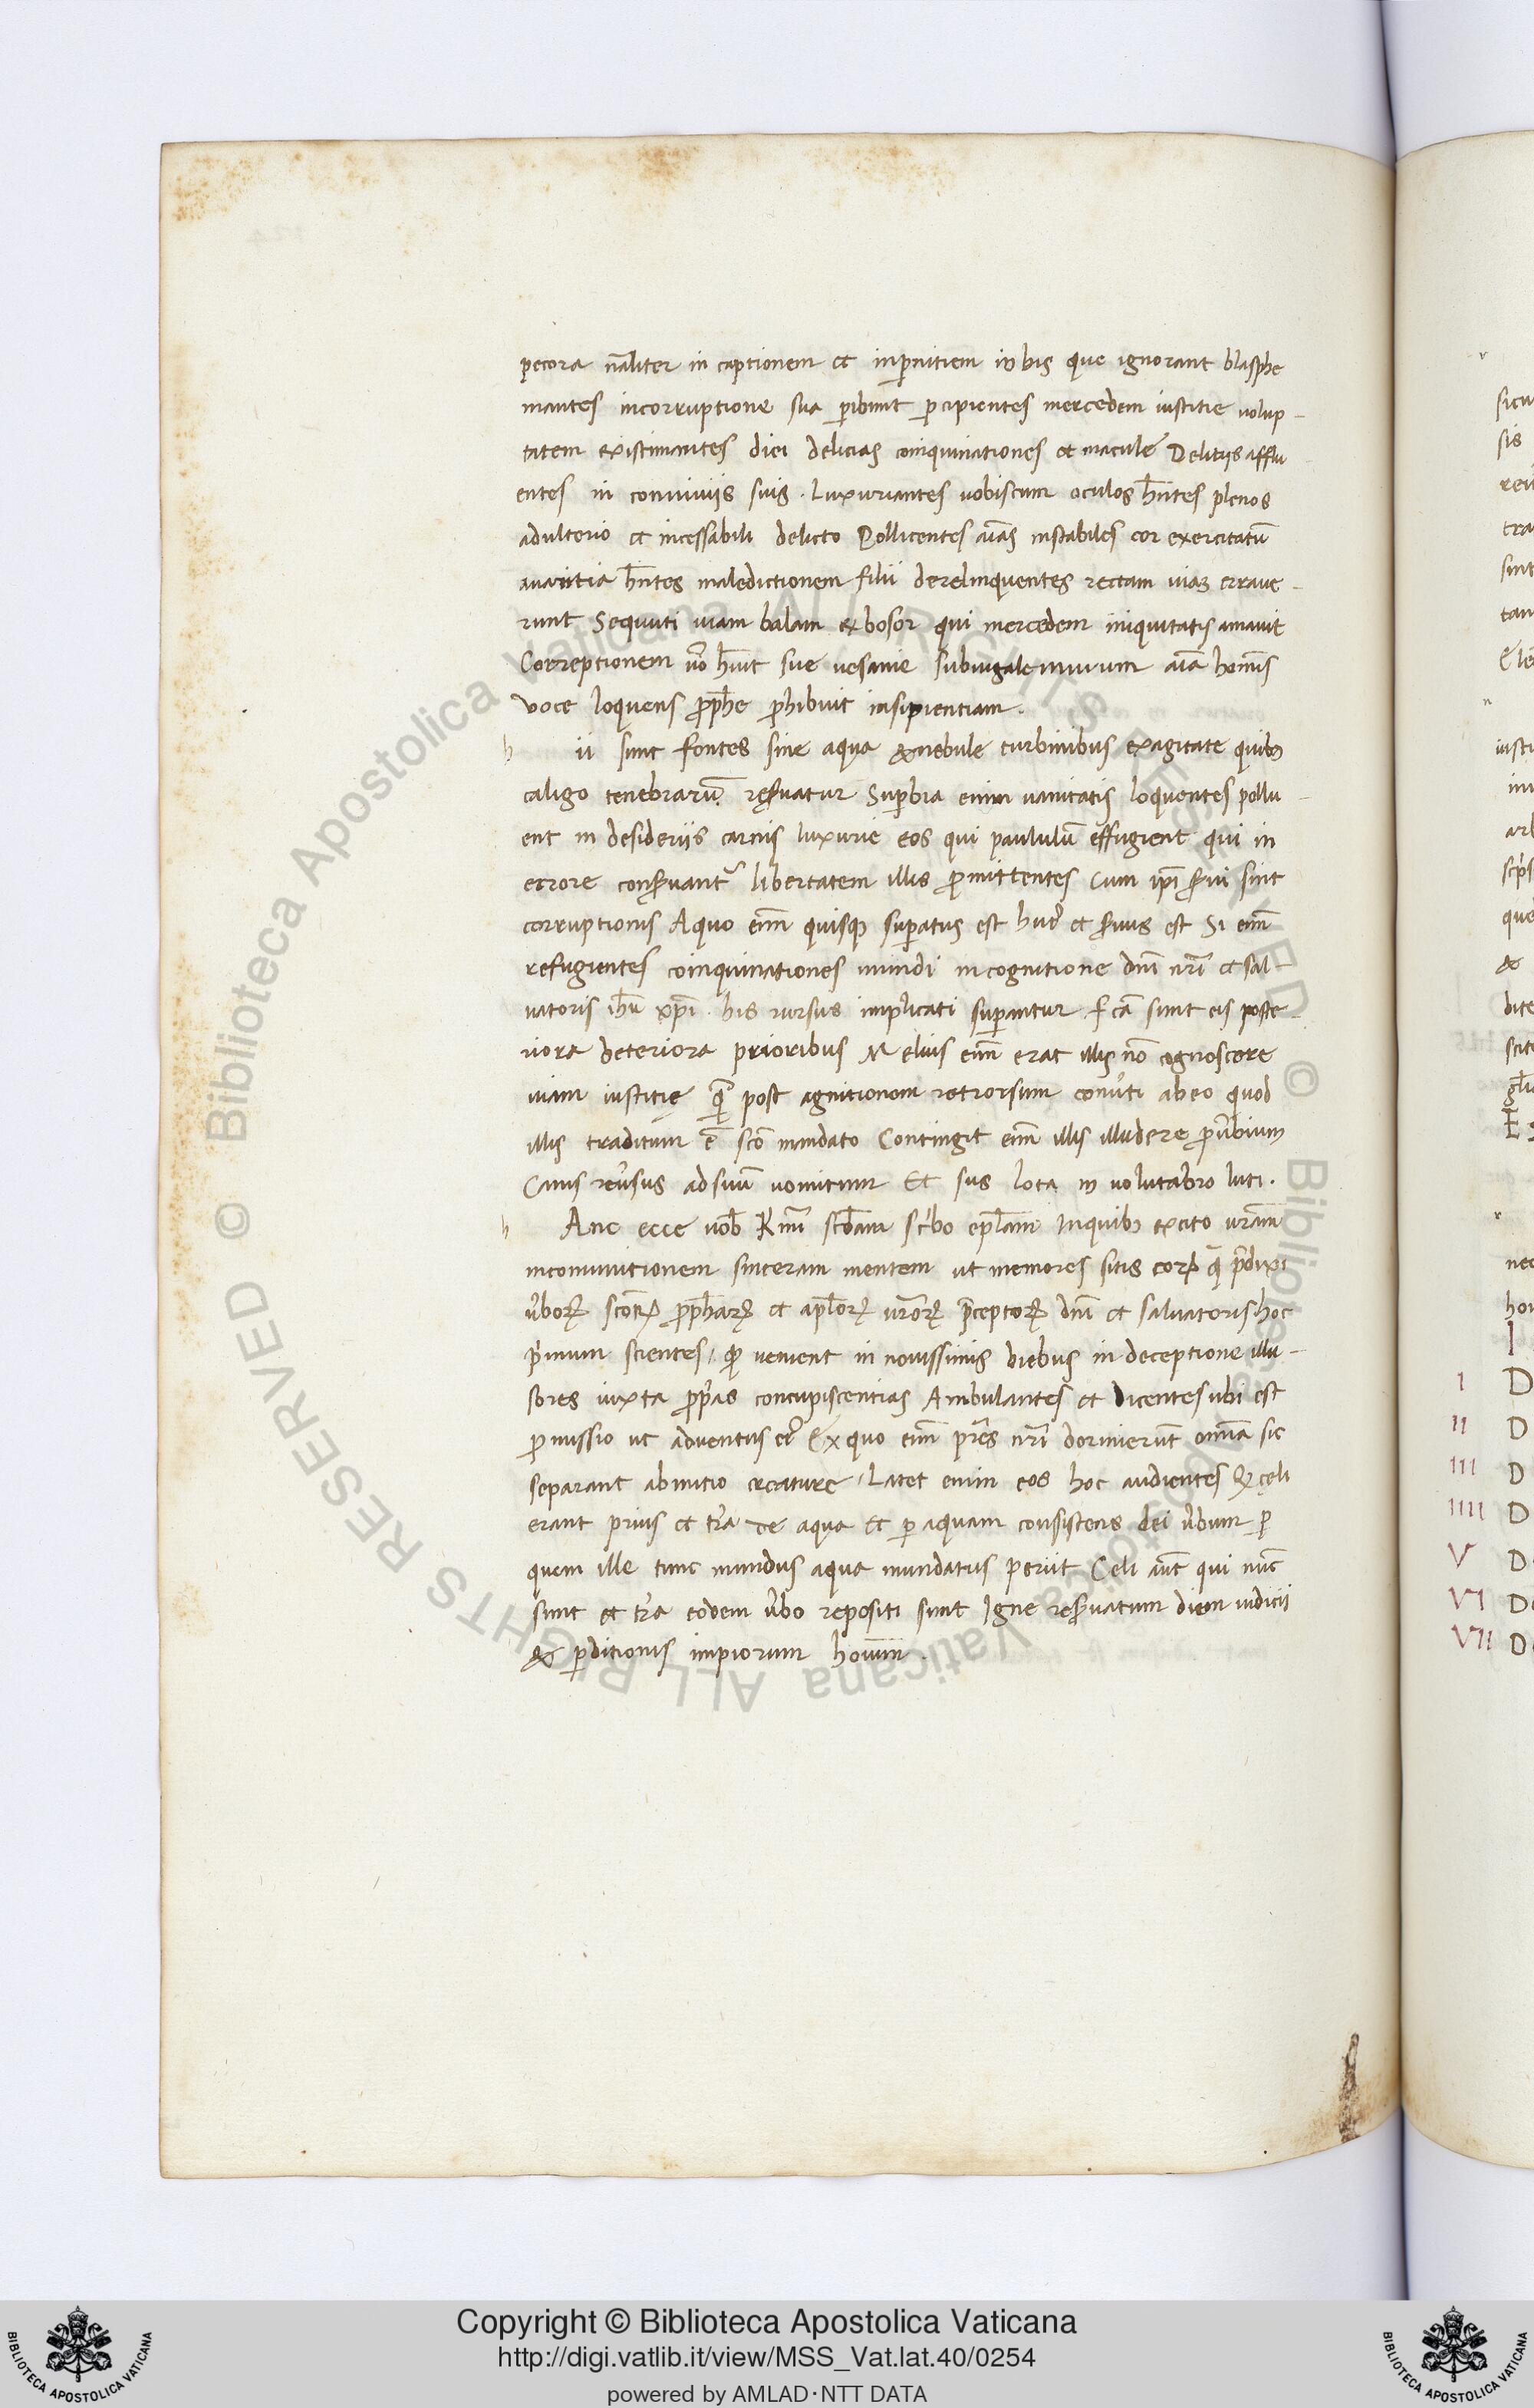 pecora nãliter in captionem et inp̄nitiem in his que ignorant blasphe
mantes incorruptione sua ꝑibunt ꝑcipientes mercedem iustitie uolup-
tatem existimantes diei delicias coinquinationes et macule Delitijs afflu
entes in conuiuijs suis . luxuriantes uobiscum oculos hñtes plenos
adulterio et incessabili delicto Pollicentes aĩas instabiles cor exercitatũ
auaritia hñtes maledictionem filii derelinquentes rectam uiaʒ erraue-
runt Sequuti uiam balam ex bosor qui mercedem iniquitatis amauit
Correptionem ũo h̃uit sue uesanie subiugale mutum aĩa homĩs
voce loquens ꝓph̃e ꝓhibuit insipientiam .
h ii sunt fontes sine aqua & nebule turbinibus exagitate quibꝫ
caligo tenebrarũ reẜuatur Suꝑbia enim uanitatis loquentes pollu-
ent in desiderijs carnis luxurie eos qui paululũ effugient qui in
errore conẜuantᷣ libertatem illis ꝓmittentes Cum ip̃i ẜui sint
corruptionis A quo enĩ quisqꝫ suꝑatus est huiꝰ et ẜuus est Si enĩ
refugientes coinquinationes mundi in cognitione dñi nr̃i et sal-
uatoris ih̃u xp̃i . his rursus implicati suꝑantur fc̃a sunt eis poste-
riora deteriora prioribus Melius enĩ erat illis nõ cognoscere
uiam iustitię q̃ post agnitionem retrorsum conũti ab eo quod
illis traditum ẽ sc̃o mandato Contingit enĩ illis illud uere ꝓũbium
Canis reũsus ad suũ uomitum Et sus lota in volutabro luti .
h Anc ecce uob̃ K̃mi sc̃dam sc̃bo ep̃lam In quibꝫ excito ur̃am
incommonitionem sinceram mentem ut memores sitis eorꝝ q̃ p̃dixi
ũborꝝ sc̃orꝝ ꝓph̃arꝝ et apl̃orꝝ ur̃orꝝ p̃ceptorꝝ dñi et saluatoris hoc
p̃mum scientes / ꝙ uenient in nouissimis diebus in deceptione illu-
sores iuxta ꝓp̃as concupiscentias Ambulantes et Dicentes ubi est
ꝓmissio ut aduentus eiꝰ Ex quo enĩ pr̃es nr̃i dormierũt om̃ia sic
separant ab initio creature / Latet enim eos hoc audientes ꝙ celi
erant prius et tr̃a de aqua Et ꝑ aquam consistens dei ũbum ꝑ
quem ille tunc mundus aqua mundatus periit Celi aũt qui nũc
sunt et tr̃a eodem ũbo repositi sunt Igne reẜuatum diem iudicii
& ꝑditionis impiorum homĩ .
I D
II D
III D
IIII D
V D
VI D
VII D
Copyright © Biblioteca Apostolica Vaticana
http://digi.vatlib.it/view/MSS_Vat.lat.40/0254
powered by AMLAD·NTT DATA
BIBLIOTECA APOSTOLICA VATICANA
BIBLIOTECA APOSTOLICA VATICANA
© Biblioteca Apostolica Vaticana ALL RIGHTS RESERVED © Biblioteca Apostolica Vaticana ALL RIGHTS RESERVED